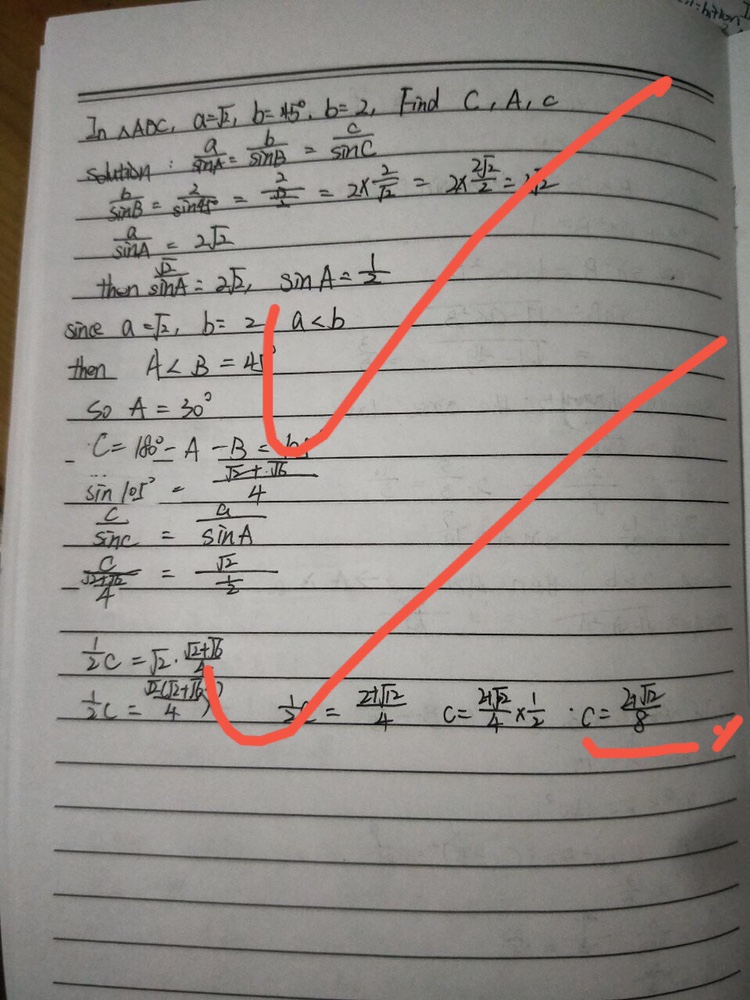 In △ABC, a=√2, b=45°, b=2, Find C, A, c
solution: a/sinA = b/sinB = c/sinC
b/sinB = 2/sin45° = 2/(√2/2) = 2×2/√2 = 2×2√2/2 = 2√2
a/sinA = 2√2
then √2/sinA = 2√2, sinA = 1/2
since a=√2, b=2 a<b
then A<B=45°
so A=30°
C=180°-A-B=
sin105° = (√2+√6)/4
c/sinc = a/sinA
c/((√2+√2)/4) = √2/(1/2)
1/2 c = √2·(√2+√6)/4
1/2 c = √2(√2+√6)/4 1/2 c = (2+√12)/4 c = (2+√12)/4 × 1/2 c = (2+√12)/8